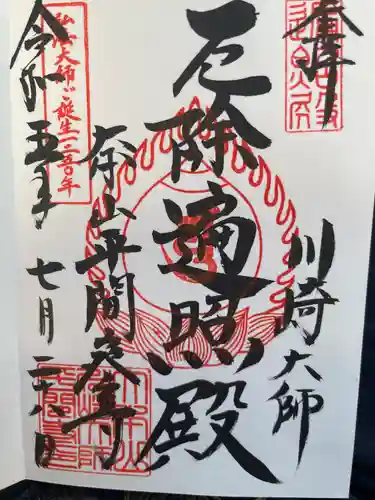 奉拝
川崎大師
厄除遍照殿
本山平間寺
弘法大師ご誕生一二五〇年
令和五年七月二六日